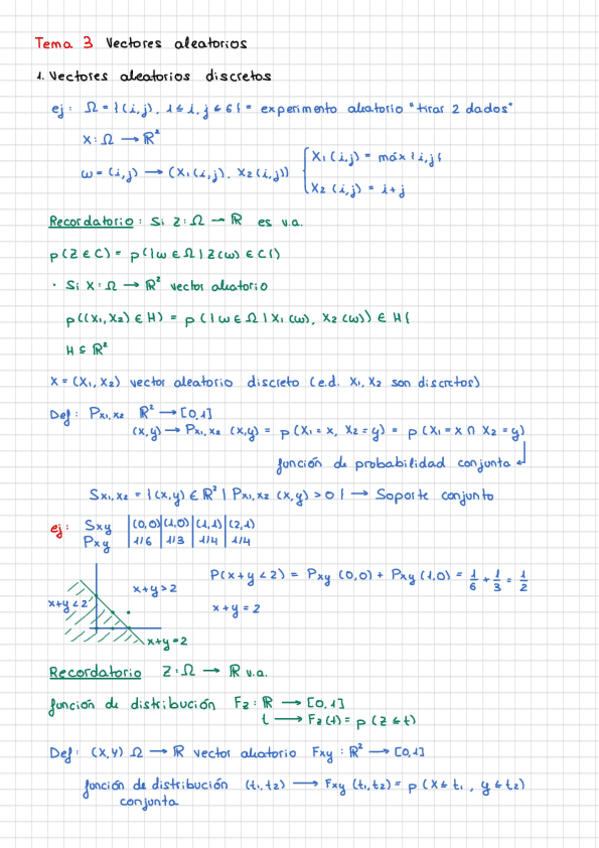 Tema 3 Vectores aleatorios
1. Vectores aleatorios discretos
ej: Ω = {(i,j), 1 ≤ i, j ≤ 6} = experimento aleatorio "tirar 2 dados"
X: Ω → ℝ²
ω = (i,j) → (X₁(i,j), X₂(i,j)) { X₁(i,j) = máx {i,j}
X₂(i,j) = i+j
Recordatorio: Si Z: Ω → ℝ es v.a.
p(Z ∈ C) = p({ω ∈ Ω | Z(ω) ∈ C})
· Si X: Ω → ℝ² vector aleatorio
p((X₁, X₂) ∈ H) = p({ω ∈ Ω | X₁(ω), X₂(ω)) ∈ H}
H ⊆ ℝ²
X = (X₁, X₂) vector aleatorio discreto (e.d. X₁, X₂ son discretos)
Def: Px₁,x₂ ℝ² → [0,1]
(x,y) → Px₁,x₂ (x,y) = p(X₁ = x, X₂ = y) = p(X₁ = x ∩ X₂ = y)
función de probabilidad conjunta ↵
Sx₁,x₂ = {(x,y) ∈ ℝ² | Px₁,x₂ (x,y) > 0} → Soporte conjunto
ej: Sxy | (0,0) | (1,0) | (1,1) | (2,1)
Pxy | 1/6 | 1/3 | 1/4 | 1/4
P(x+y<2) = Pxy (0,0) + Pxy (1,0) = 1/6 + 1/3 = 1/2
x+y>2
x+y<2
x+y=2
x+y=2
Recordatorio Z: Ω → ℝ v.a.
función de distribución Fz: ℝ → [0,1]
t → Fz(t) = p(Z ≤ t)
Def: (X,Y) Ω → ℝ vector aleatorio Fxy: ℝ² → [0,1]
función de distribución (t₁,t₂) → Fxy (t₁,t₂) = p(X ≤ t₁, y ≤ t₂)
conjunta